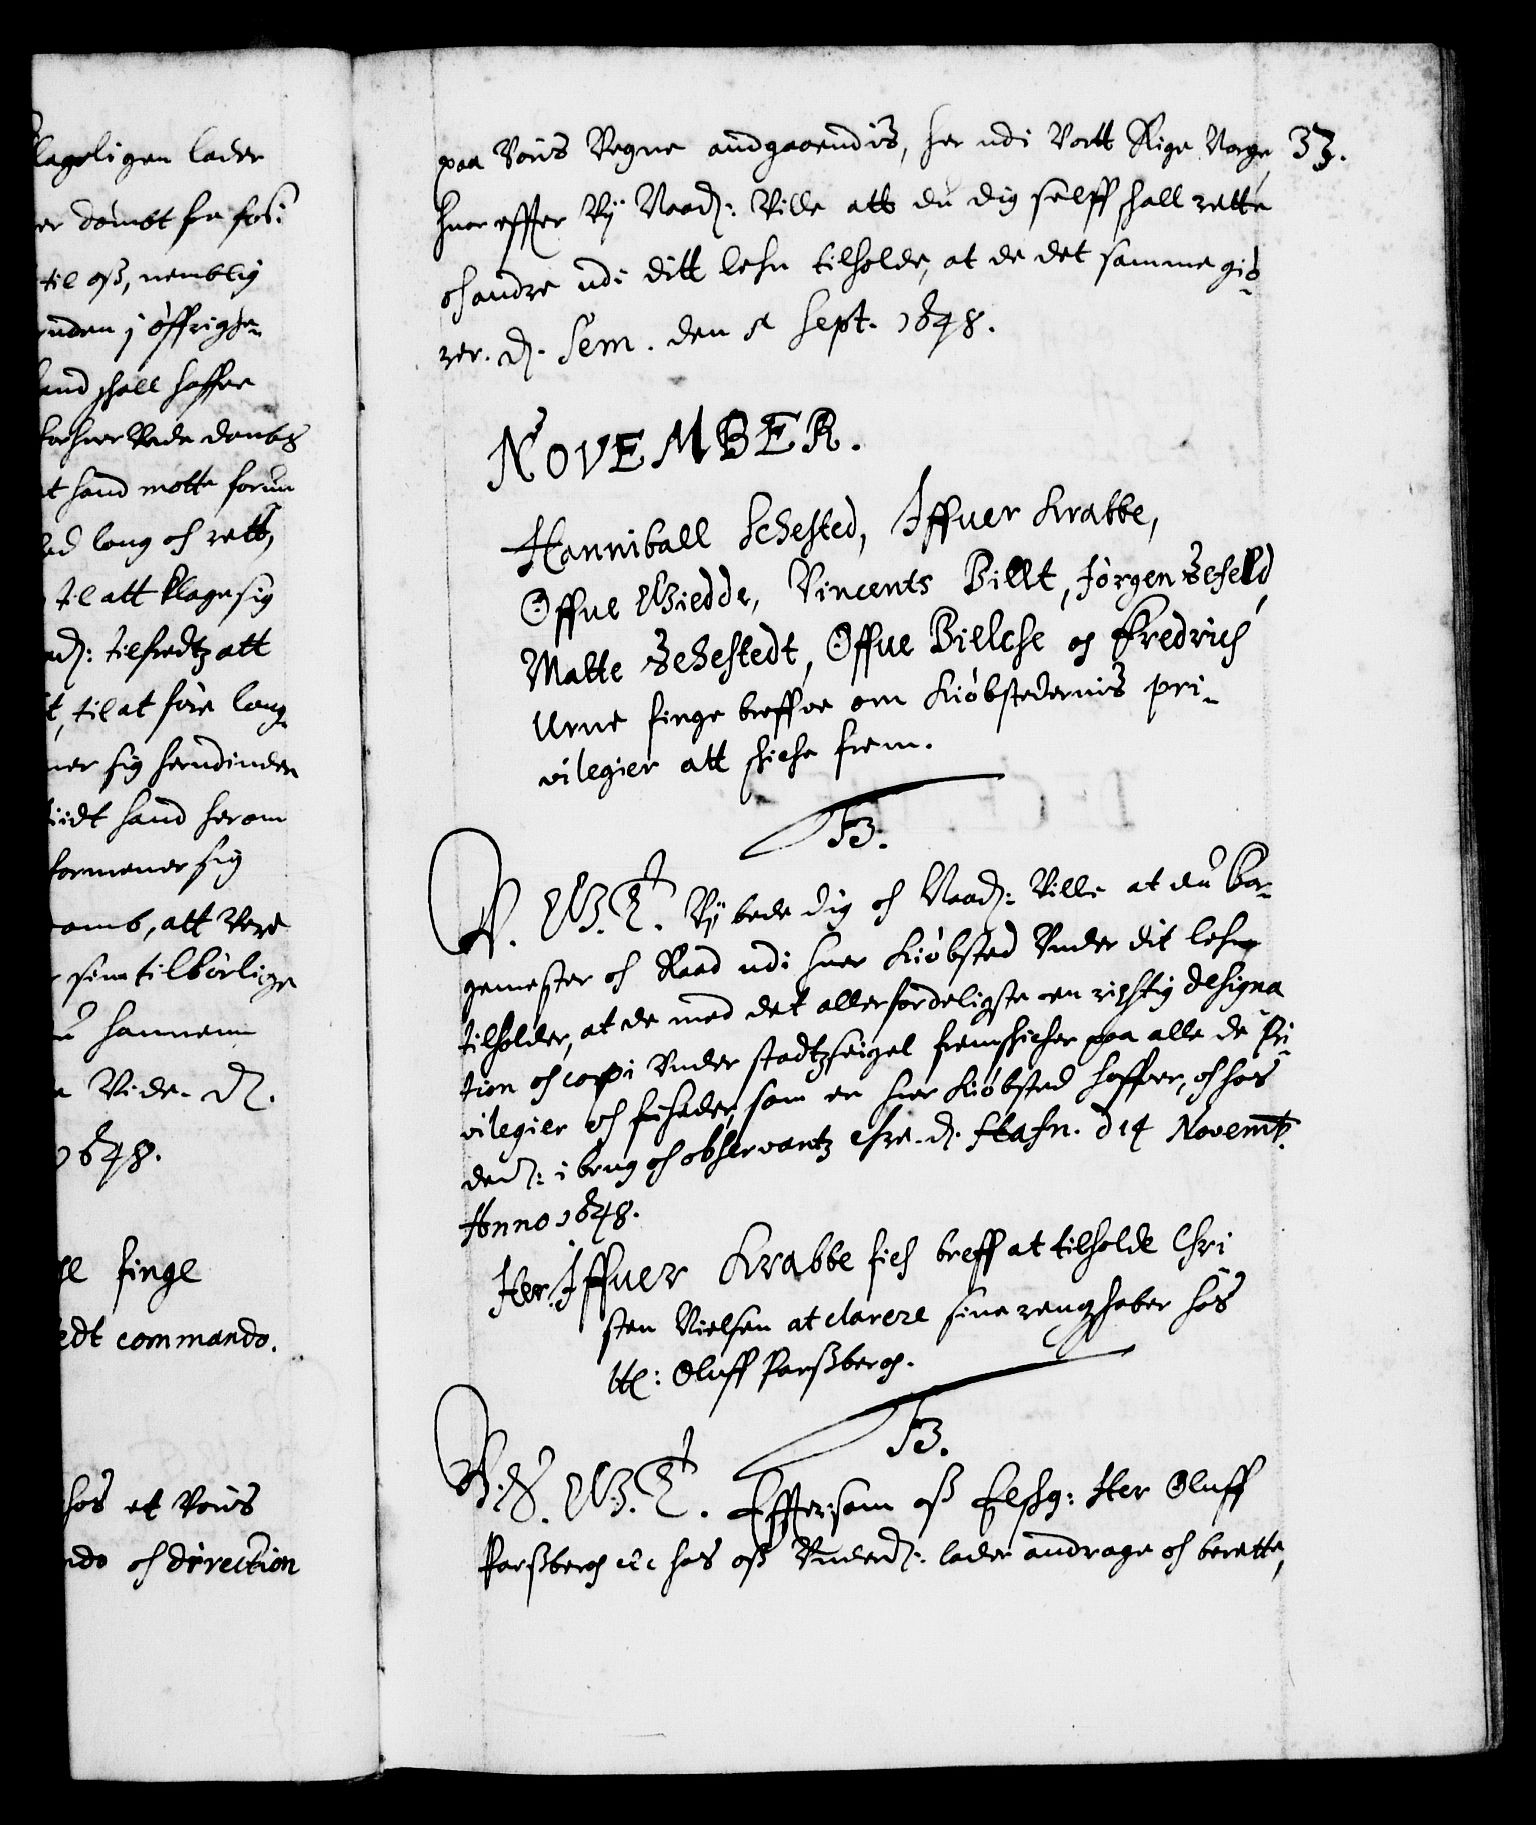 lageligen lader
er dömbt fra fos:
til oß, nemblig
unden j öffrighe-
hand shall haffue
forhver Rede
t hand motte forun
ed loug oh rett,
til att klage sig
ad: tilfredtz att
t, til at före loug
ner sig herudinden
iidt hand herom
formener sig
somb, att Vere
sine tilbörlige
hannem
Vide. D.
1648.
finge
edt commando.
hos et Voris
ndo oh direction
33.
paa Voris Vegne andgaaendis, her udi Vortt Rige Norge,
huor effter Vij Naad: Ville att du dig self shall rette
oh andre udi ditt lehn tilholde, at de det samme giö-
rer. D. Sem. den 5 Sept. 1648.
NOVEMBER.
Hanniball Sehested, Iffuer Krabbe,
Offue Giedde, Vincents Billt, Jörgen Sehefeld,
Malte Sehestedt, Offue Billehe oh Fredrich
Urne finge breffue om Kiöbstedernis pri-
vilegier att shiche frem.
F3.
W. G. T. Vij bede dig oh Naad: Ville at du bor-
gemester oh Raad udi huer Kiöbsted Under dit lehn
tilholder, at de med det allerforderligste een richtig designa
tion oh copi Under stadtzseigel fremshicher paa alle de Pri
vilegier oh friheder, som en huer Kiöbsted haffuer, oh hos
dem: i brug oh observantz ehre. D. Hafn. d 14 Novemb.
Anno 1648.
Her: Iffuer Krabbe fich breff at tilholde Chri
sten Nielsen at clarere sine rengshaber hos
Oluff Parßbergh.
F3.
G. T. Efftersom oß Elshe: Her Oluff
Parßbergh etc hos oß Underd: lader andrage oh berette,